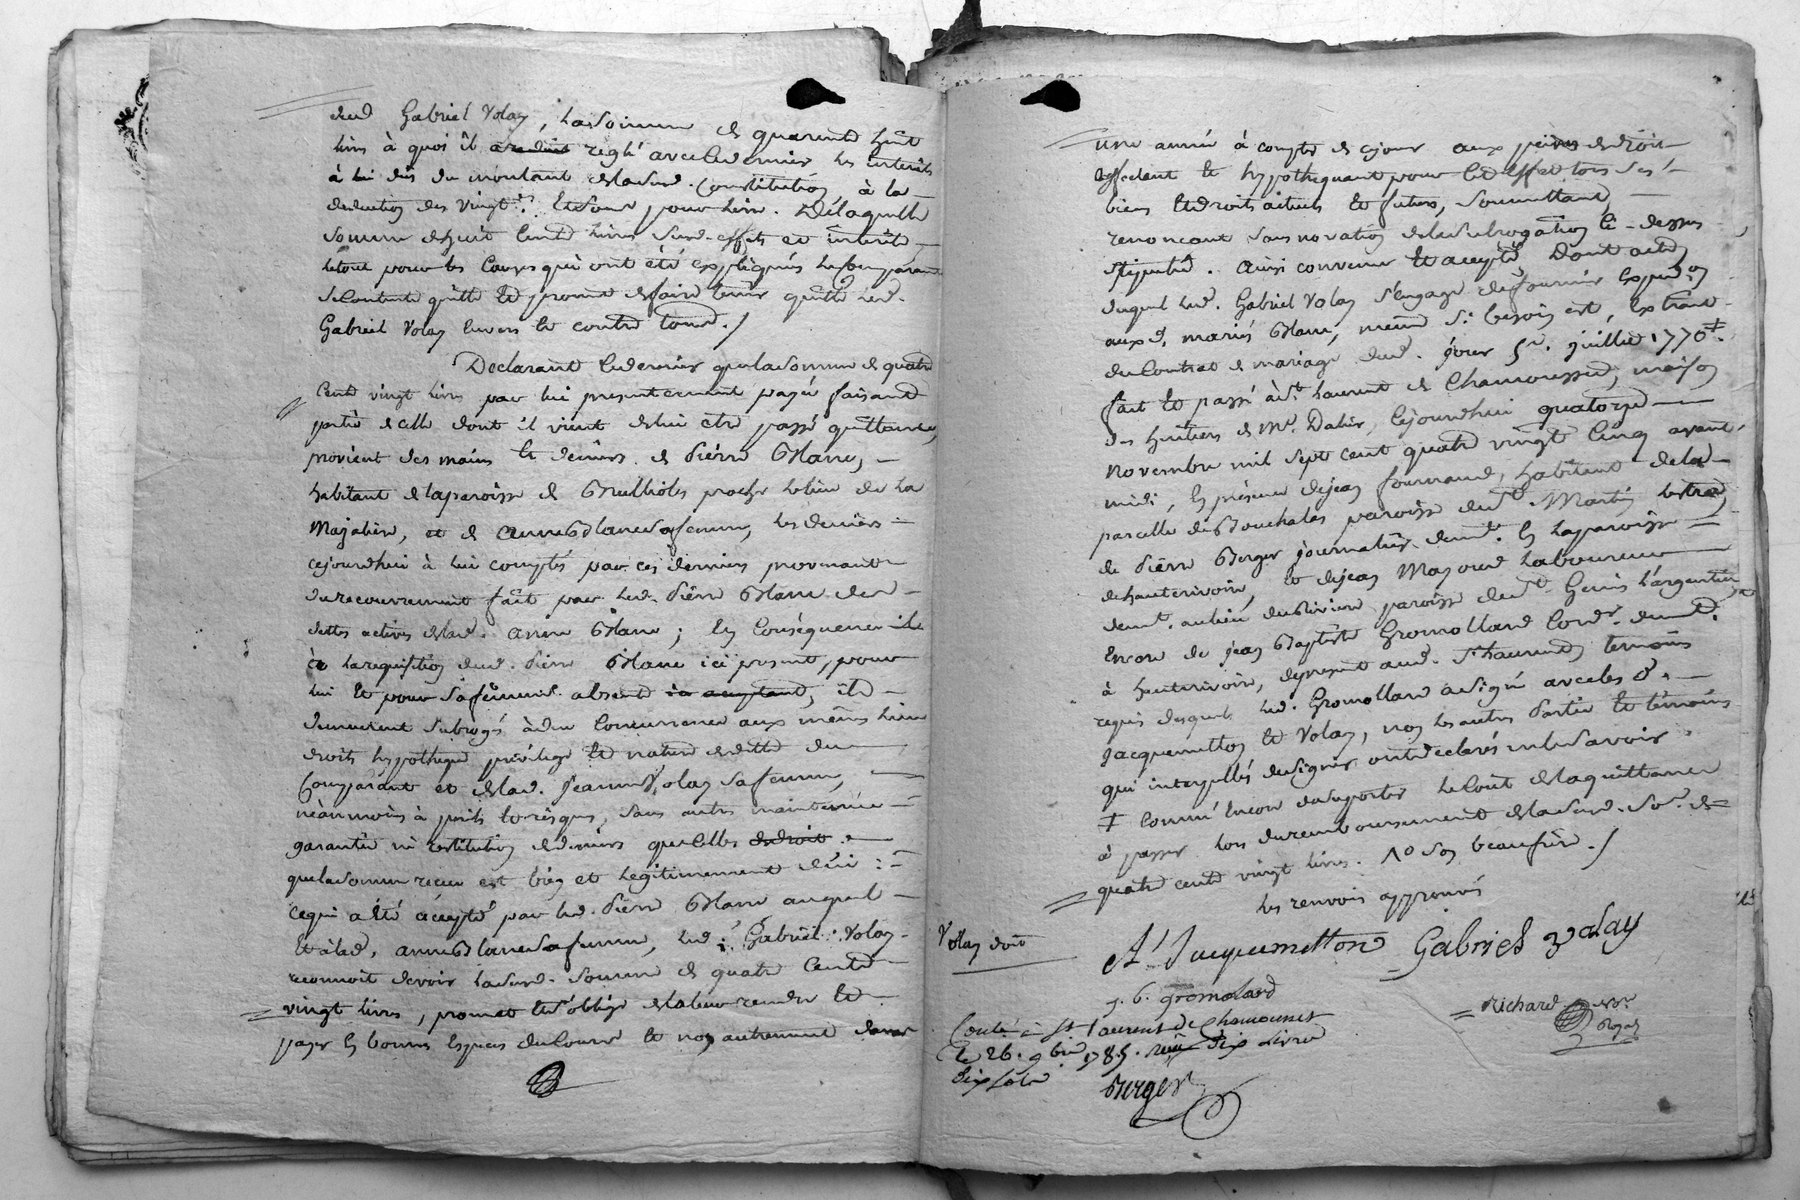 dud Gabriel Volay, la somme de quarante huit
livres à quoi il a reduit reglé avec led. dernier les interets
à lui dûs du montant de lad. Constitution à la
deduction des vingt.es et sous pour livre. De laquelle
somme de huit cents livres susd. effets et interets
le tout pour les causes qui ont été expliqués le comparant
se contente quitte et promet de faire tenir quitte led.
Gabriel Volay envers et contre tous. /
Declarant led. dernier que la somme de quatre
Cents vingt livres par lui presentement payée faisant
partie de celle dont il vient de lui etre passé quittance,
provient des mains et deniers de Pierre Blanc,
habitant de la paroisse de Brullioles proche le lieu de la
Majalière, et de Anne Blanc sa femme, les deniers
cejourdhui à lui comptés par ces derniers provenants
du recouvrement fait par led. Pierre Blanc des
dettes actives de lad. Anne Blanc; En Conséquence et
à la requisition dud. Pierre Blanc ici present, pour
lui et pour sad. femme absente ici acceptant, ils
demeurent subrogés à due Concurrence aux mêmes lieu
droits hypotheque privilege et nature de dette du
Comparant et de lad. Jeanne Volay sa femme,
néanmoins à perils et risques, sans autre maintenue
garantie ni restitution de deniers que celles de droit
que la somme recue est bien et legitimement düe:
ce qui a été accepté par led. Pierre Blanc auquel
et à lad. Anne Blanc sa femme, led. Gabriel Volay
reconnoit devoir lad. somme de quatre Cents
vingt livres, promet et s'oblige de la leur rendre et
payer En bonnes Especes du Cours et non autrement dans
une année à compter de ce jour aux peines de droit
affectant et hypothequant pour led. effet tous ses
biens et droits actuels et futurs, soumettant,
renonçant sans novation de la subrogation ci-dessus
stipulée. ainsi convenu et accepté Dont acte,
duquel led. Gabriel Volay s'engage de fournir Exped.on
auxd. mariés Blanc, même s'il besoin est, Extrait
du Contrat de mariage dud. jour 5e. juillet 1770 ‡.
fait et passé à St. Laurent de Chamousset, maison
des heritiers de Me. Dalin, Cejourdhui quatorze
novembre mil sept cent quatre vingt Cinq avant
midi, En presence de jean fournand, habitant de la
parcelle de Bouchalas paroisse de St. Martin Lestra,
de Pierre Berger journalier demt. En la paroisse
de hauterivoire, et de jean Mayoud laboureur
demt. au lieu du Rivier paroisse de St. Genis L'argentière
Encore de jean Baptiste Gromolland Cord.r demt.
à hauterivoire, de present aud. St. Laurent, temoins
requis desquels led. Gromolland a signé avec lesd.
Jacquemetton et Volay, non les autres Parties et temoins
qui interpellés de signer ont declarés ne le savoir.
‡ Comme Encore de supporter le Cout de la quittance
à passer lors du remboursement de la susd. so.e de
quatre cents vingt livres. No son beaufrère. /
les renvois approuvés
Volay doit
At Jacquemetton Gabriel volay
j. b. gromoland
Richard No.re Royal
Conlé à St Laurent de Chamousset
le 26. 9bre 1785. reçu dix livres
dix sols
Berger